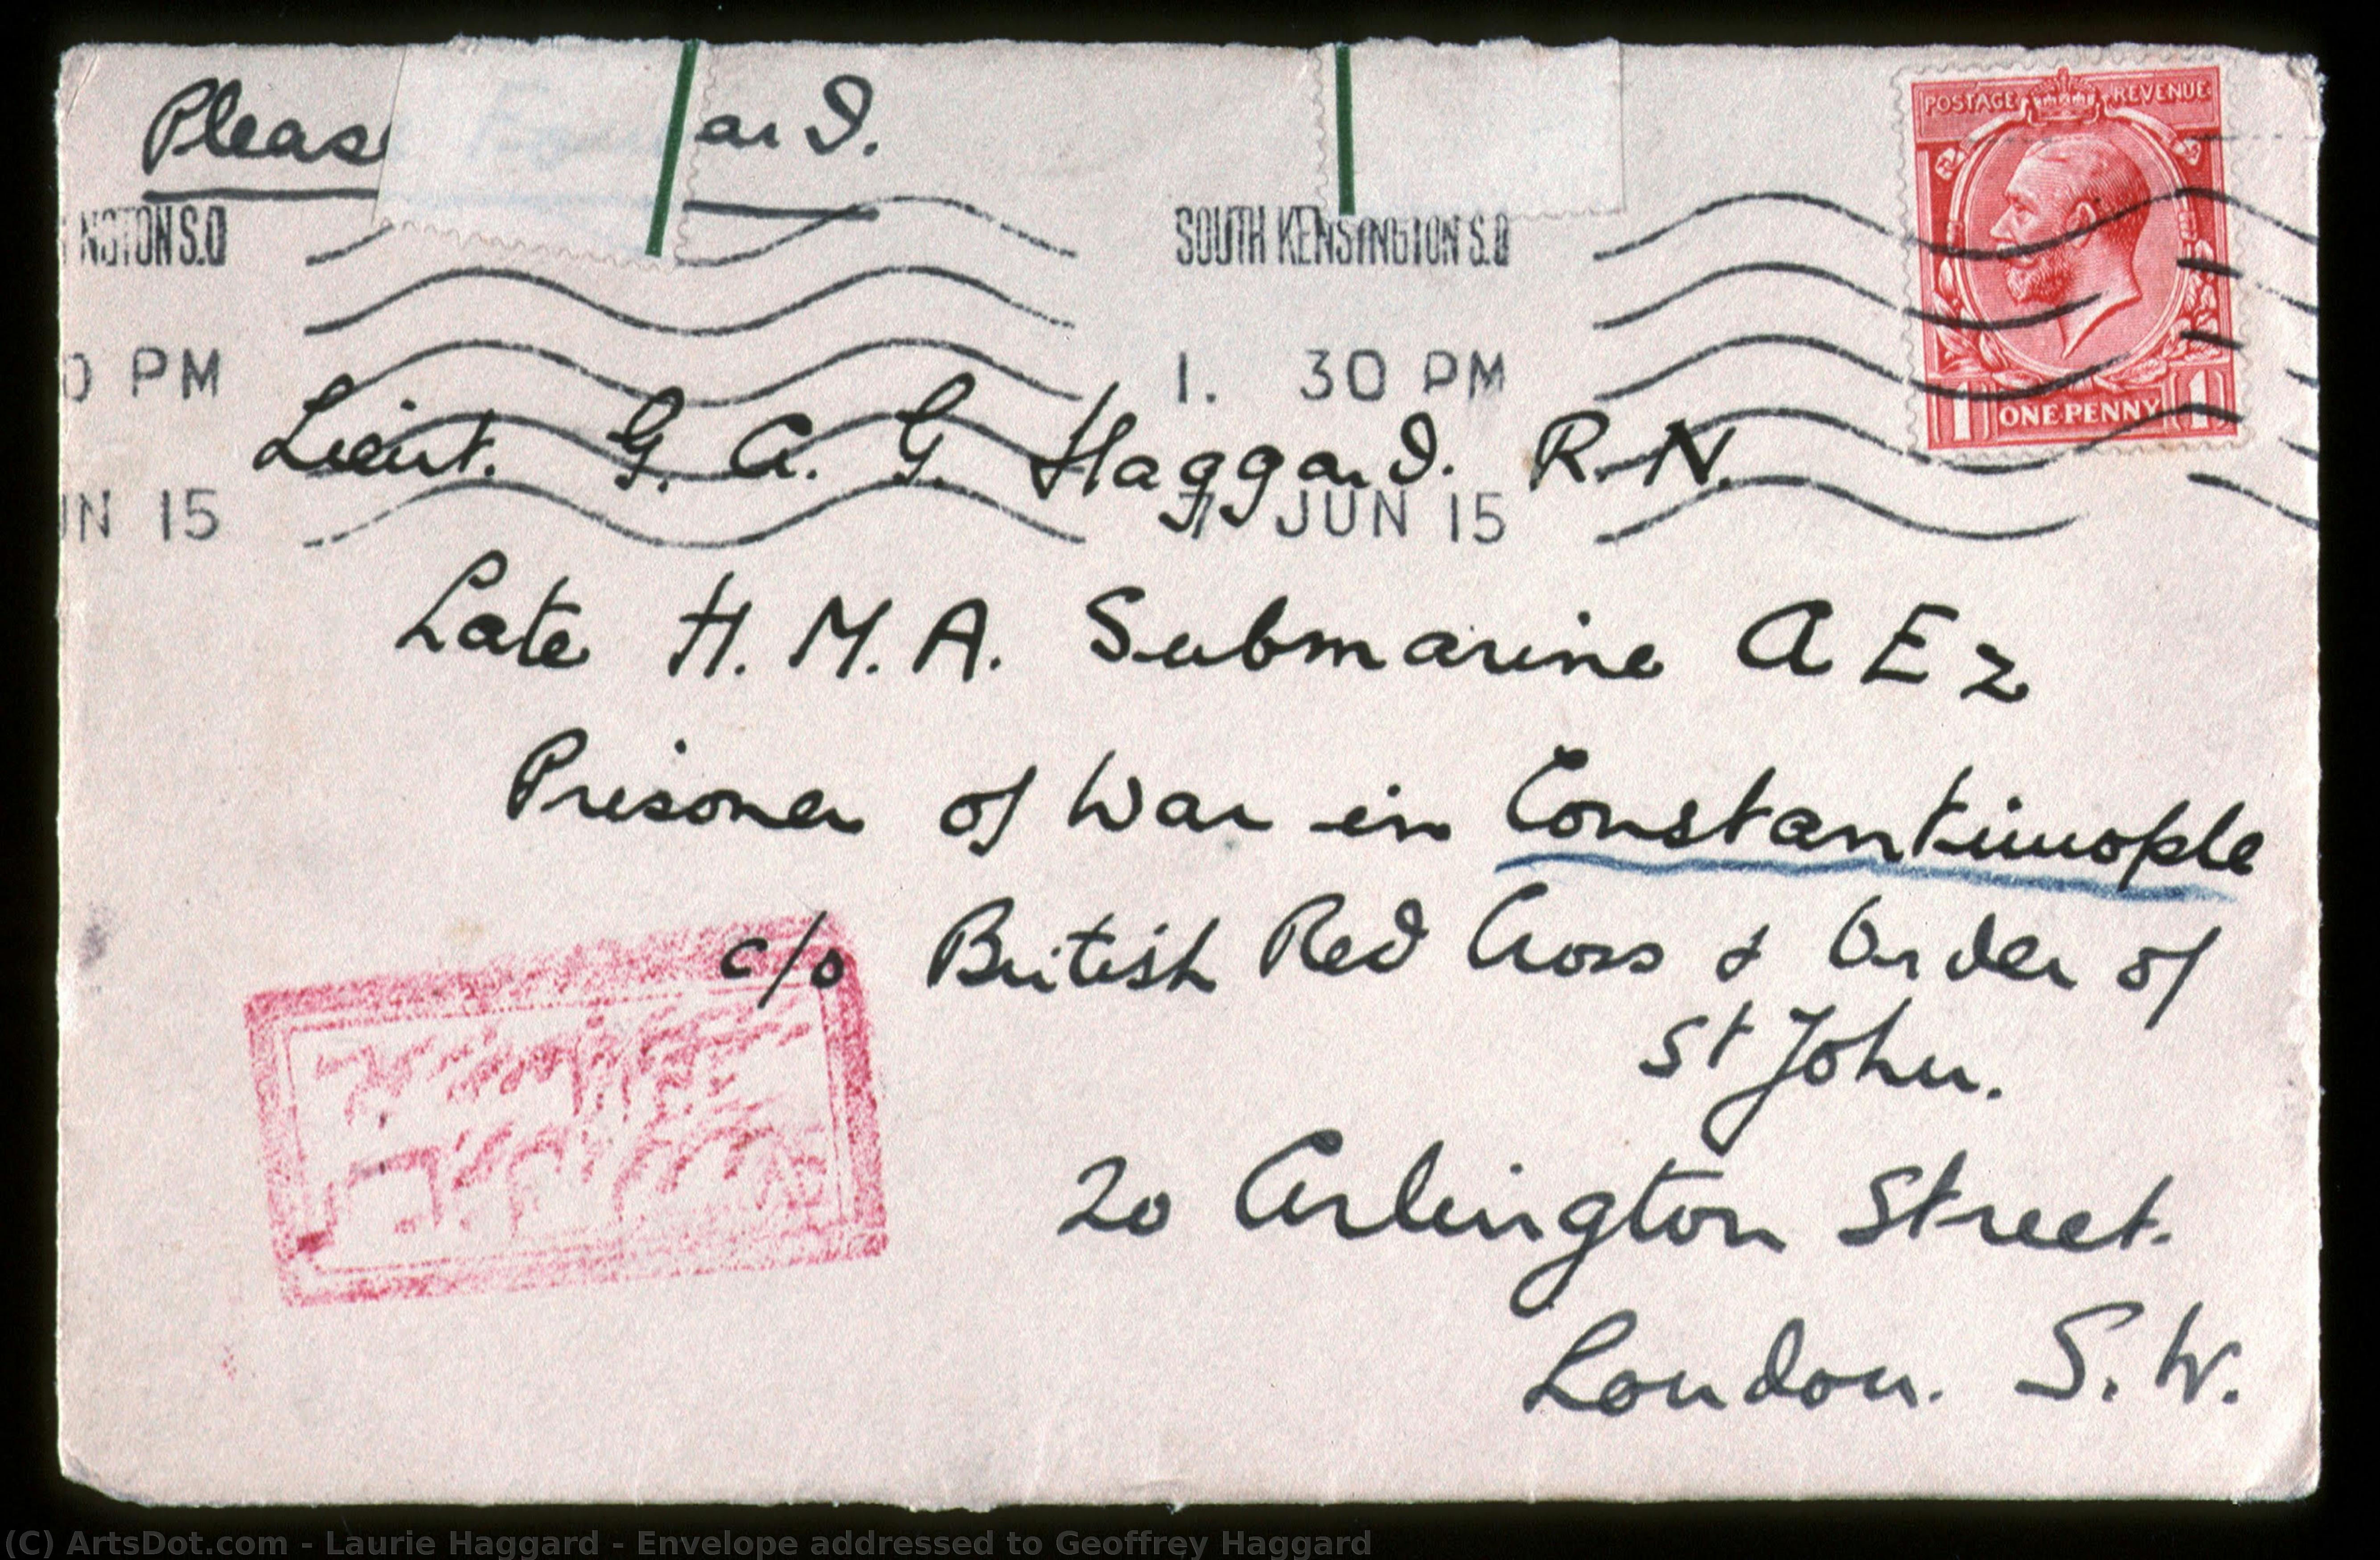 Please ard.
POSTAGE REVENUE
NGTON S.O
SOUTH KENSINGTON S.O
PM
1. 30 PM
ONE PENNY
1 1
Lieut. G. A. G. Haggard. R.N.
UN 15
JUN 15
Late H.M.A. Submarine AE2
Prisoner of War in Constantinople
c/o British Red Cross & Order of
St John.
20 Arlington Street.
London. S.W.
(C) ArtsDot.com - Laurie Haggard - Envelope addressed to Geoffrey Haggard